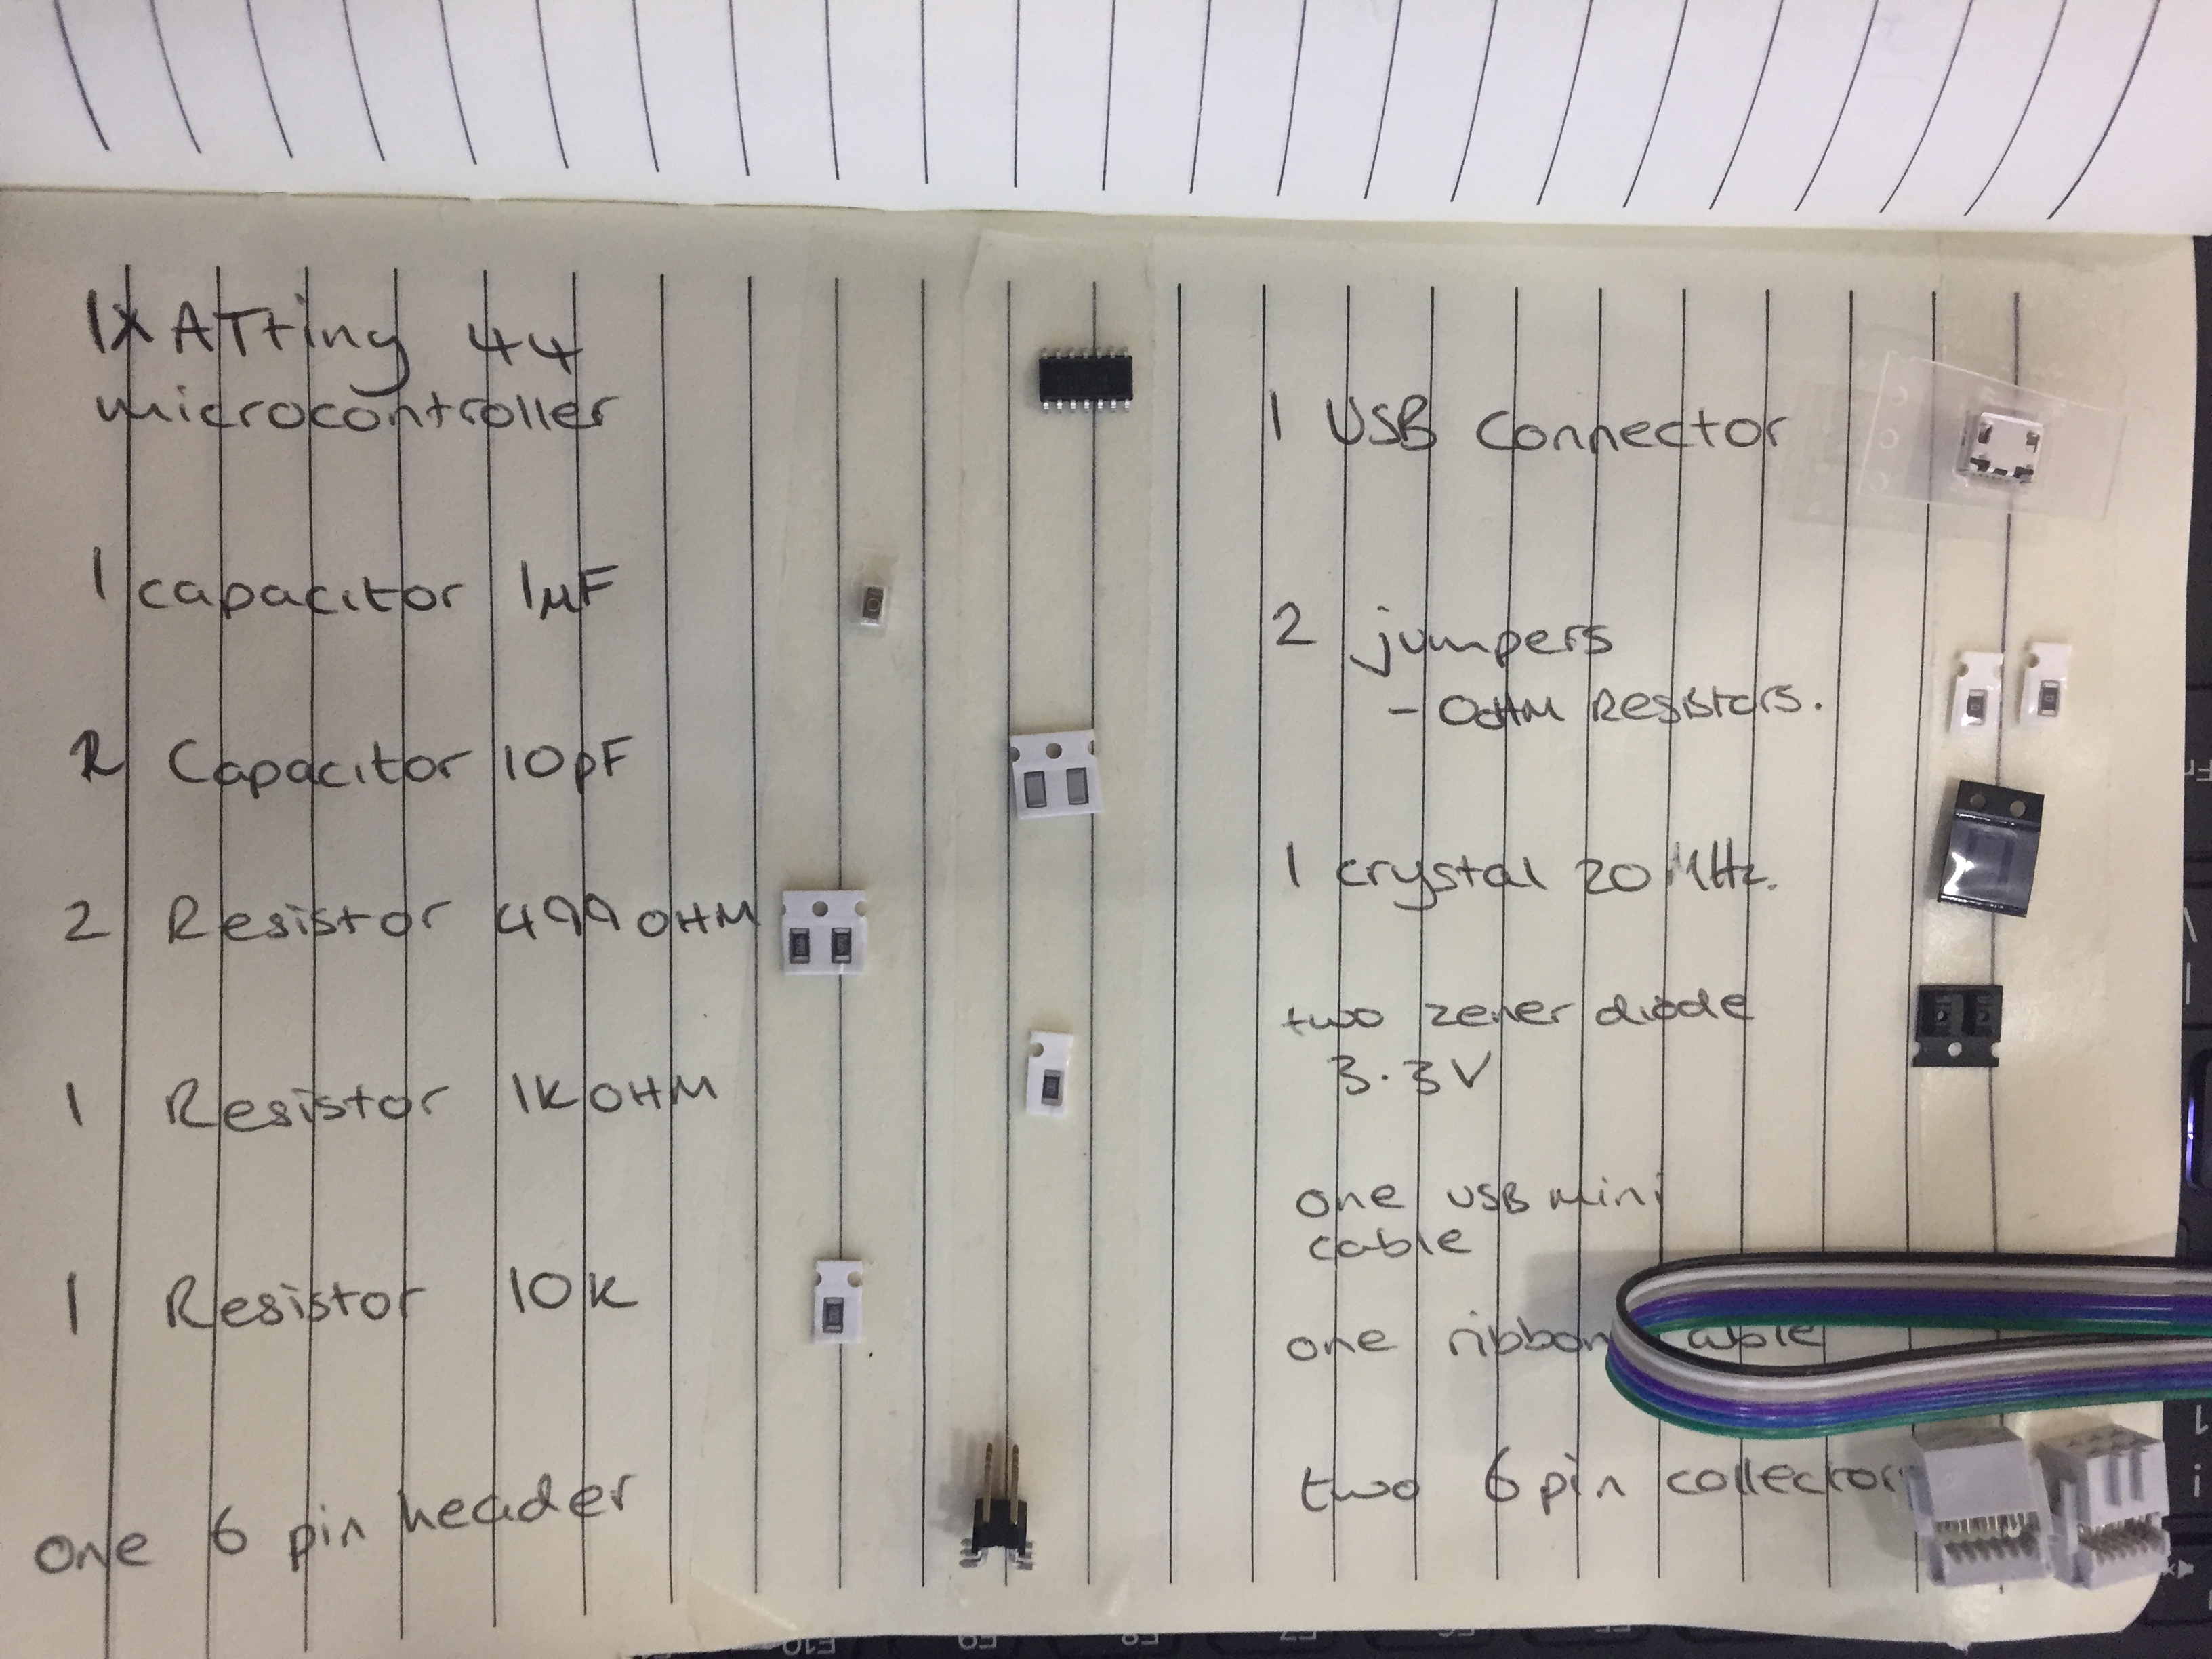 1x ATtiny 44
microcontroller
1 capacitor 1µF
2 Capacitor 10pF
2 Resistor 499 OHM
1 Resistor 1K OHM
1 Resistor 10K
one 6 pin header
1 USB Connector
2 jumpers
- 0OHM Resistors.
1 crystal 20 MHz.
two zener diode
3.3V
one USB mini
cable
one ribbon
two 6 pin collectors
F10
F9
F8
F7
F6
!
1